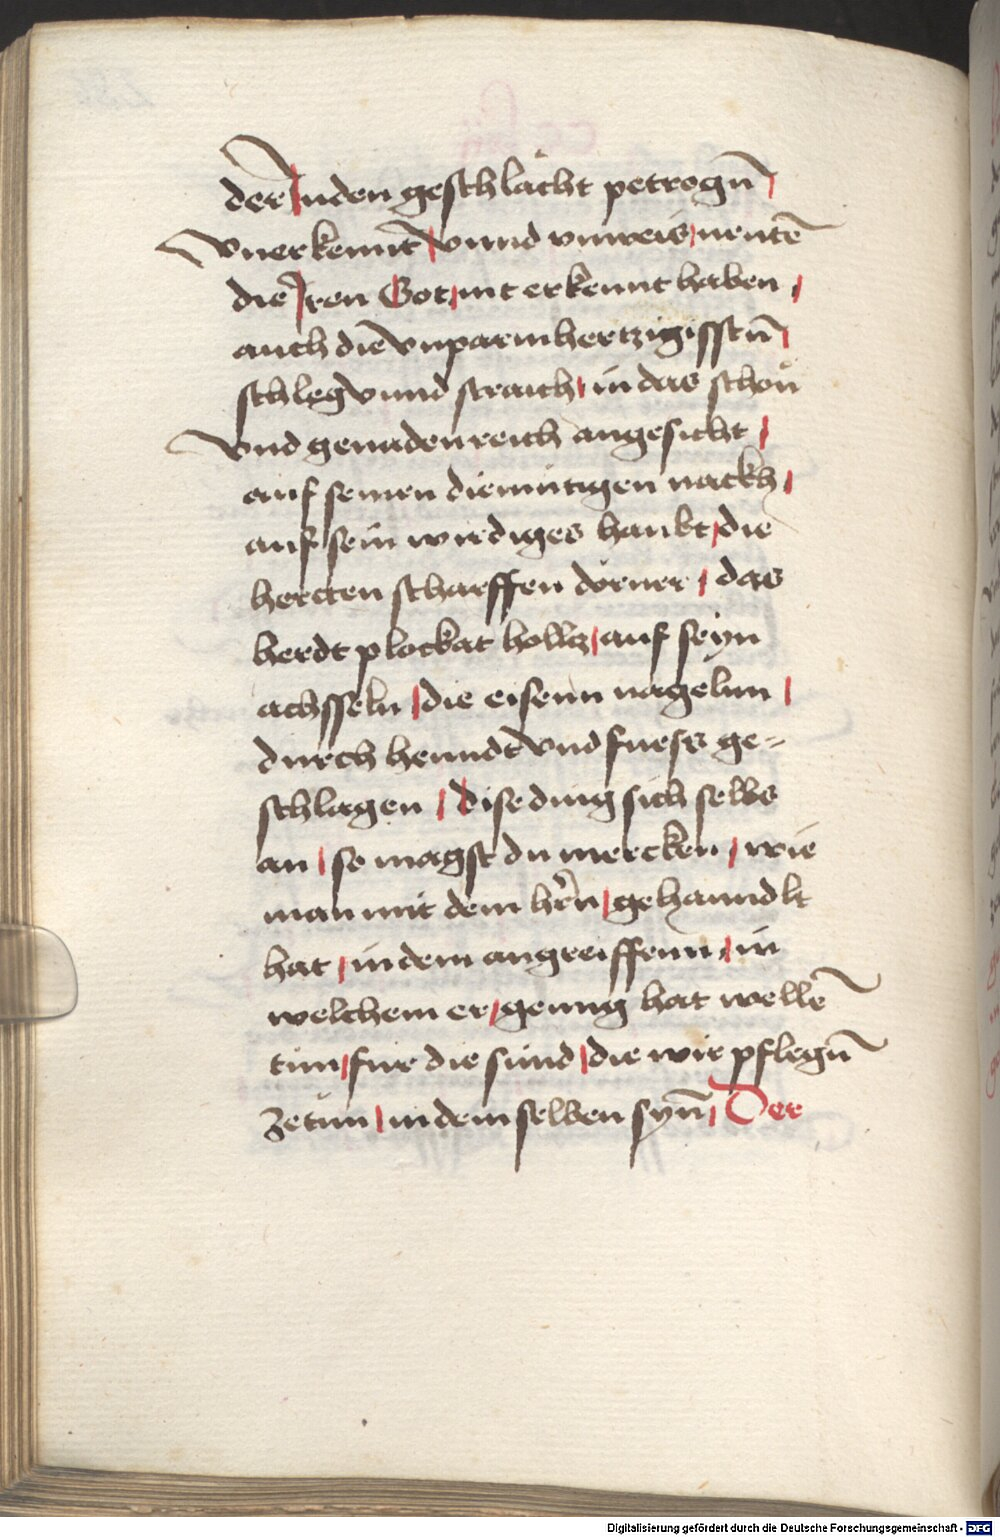 der Juden geschlächt petrogn̄
vnerkennt̄ vnnd vnweis, nentē
die Jren Got, nit erkennt haben,
auch die vnparmhertzigissten̄
schleg vnnd straich, in das schön
vnd genadenreich angesicht,
auf seinen diemütigen nackh,
auf sein wirdiges haubt, die
hertten scharffen dörner, das
herdt plockat holltz, auf seyn
achsseln, die eisenn nagelnn,
durch henndt vnd fuess ge-
schlagen, dise ding sich selbs
an, so magst du mercken, wie
man mit dem hr̄n, gehanndlt
hat, in dem angreiffenn, in
welchem er, genug hat wellē
tun, für die sünd, die wir pflegn̄
ze tun, in dem selben syn̄, Der
Digitalisierung gefördert durch die Deutsche Forschungsgemeinschaft - DFG